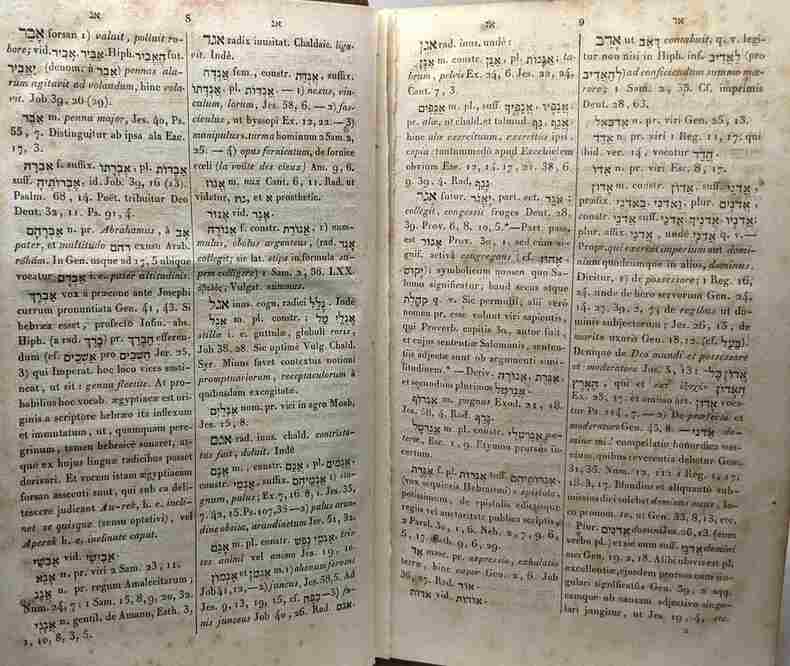 אב
8
אג
אָבַר forsan 1) valuit, polluit ro-
bore; vid. אביר. Hiph. fut.
(denom: à אבר) pennas ala-
rum agitavit ad volandum, hinc vola-
vit. Job 39, 26 (29).
אבר m. penna major, Jes. 40, Ps.
55, 7. Distinguitur ab ipsa ala Eze.
17, 3.
אברה f. suffix. אברתו, pl.
suff. id. Job. 39, 16 (13).
Psalm. 68, 14. Poët. tribuitur Deo
Deut. 32, 11. Ps. 91, 4.
אברהם n. pr. Abrahamus, à אב
pater, et multitudo רהם exusu Arab.
rôhâm. In Gen. usque ad 17, 5 ubique
vocatur אברם i. e. pater altitudinis.
אברך vox à præcone ante Josephi
currum pronuntiata Gen. 41, 43. Si
hebræa esset, profectò Infin. abs.
Hiph. (a rad. ברך) pr. efferen-
dum (cf. pro Jer. 25,
3) qui Imperat. hoc loco vices susti-
neat, ut sit: genua flectite. At pro-
babilius hoc vocab. ægyptiacæ est ori-
ginis a scriptore hebræo ita inflexum
et immutatum, ut, quamquam pere-
grinum, tamen hebraicè sonaret, at-
que ex hujus linguæ radicibus posset
derivari. Et vocem istam ægyptiacam
forsan assecuti sunt, qui sub ea deli-
tescere judicant Au-rek, h. e. incli-
net se quisque (sensu optativi), vel
Aperek h. e. inclinate caput.
אבישי vid.
אגא n. pr. viri 2 Sam. 23, 11.
אגג n. pr. regum Amalecitarum,
Num. 24, 7; 1 Sam. 15, 8, 9, 20, 32.
אגגי n. gentil. de Amano, Esth. 3,
1, 10, 8, 3, 5.
אגד radix inusitat. Chaldaic. liga-
vit. Indè.
אגדה fem., constr. suffix.
pl. — 1) nexus, vin-
culum, lorum, Jes. 58, 6. — 2) fas-
ciculus, ut hyssopi Ex. 12, 22. — 3)
manipulus, turma hominum 2 Sam. 2,
25. — 4) opus fornicatum, de fornice
cœli (la voûte des cieux) Am. 9, 6.
אגוז m. nux Cant. 6, 11. Rad. ut
videtur, et א prosthetic.
אגור vid. אגר.
אגורה f. constr. 1) num-
mulus, obolus argenteus, (rad. אגר
collegit; sic lat. stips in formula sti-
pem colligere) 1 Sam. 2, 36. LXX.
ὀβολὸς, Vulgat. nummus.
אגל inus. cogn. radici גלל. Indè
אגל m. pl. constr.;
stilla i. e. guttula, globuli roris,
Job 38, 28. Sic optimè Vulg. Chald.
Syr. Minus favet contextus notioni
promptuariorum, receptaculorum à
quibusdam excogitatæ.
אגלים nom. pr. vici in agro Moab,
Jes. 15, 8.
אגם rad. inus. chald. contrista-
tus fuit, doluit. Indè
אגם m., constr. pl. אגמים,
constr. suffix. 1) sta-
gnum, palus; Ex. 7, 16. 8, 1. Jes. 35,
7. 42, 15. Ps. 107, 35 — 2) palus arun-
dine obsita, arundinetum Jer. 51, 32.
אגם m. pl. constr. tris-
tes animi vel animo Jes. 19, 10.
אגמון et m. 1) ahenum fervens
Job 41, 12, — 2) juncus, Jes. 58, 5. Ad
Jes. 9, 13, 19, 15, cf. — 3) fu-
nis junceus Job 40, 26. Rad. אגם
אג
9
אד
אגן rad. inus. unde:
אגן m. constr. pl. la-
brum, pelvis Ex. 24, 6. Jes. 22, 24,
Cant. 7, 3.
אגפים m. pl., suff.
pr. alæ, ut chald. et talmud.
hinc alæ exercituum, exercitus ipsi,
copiæ: tantummodo apud Ezechielem
obvium Eze. 12, 14. 17, 21. 38, 6.
9. 39, 4. Rad.
אגר futur. part. act.
collegit, congessit fruges Deut. 28,
39. Prov. 6, 8. 10, 5. — Part. pass.
est Prov. 30, 1, sed cum si-
gnif. activâ congregans (cf.
symbolicum nomen quo Sa-
lomo significatur, haud secus atque
קהלת q. v. Sic permulti, alii verò
nomen pr. esse volunt viri sapientis,
qui Proverb. capitis 30, autor fuit,
et cujus sententiæ Salomonis, senten-
tiis adjectæ sunt ob argumenti simi-
litudinem. — Deriv.
et secundum plurimos
אגרוף m. pugnus Exod. 21, 18,
Jes. 58, 4. Rad. גרף.
m. pl. constr.
Esr. 1, 9. Etymon prorsus in-
certum.
אגרת f. pl. suff.
(vox sequioris Hebraismi), epistola,
potissimum, de epistolis edictisque
regiis vel autoritate publica scriptis,
2 Paral. 30, 1, 6. Neh. 2, 7, 9. 6,
5, 17. Esth. 9, 6, 29.
אד masc. pr. aspersio, exhalatio
terræ, hinc vapor Gen. 2, 6. Job
36, 27. Rad.
אדות vid. אודות.
אדב ut דאב contabuit, q. v. legi-
tur non nisi in Hiph. inf. (pro
ad conficiendum summo mœ-
rore; 1 Sam. 2, 33. Cf. imprimis
Deut. 28, 65.
אדבאל n. pr. viri Gen. 25, 13.
אדד n. pr. viri 1 Reg. 11, 17; qui
ibid. ver. 14, vocatur הדד.
אדו n. pr. viri Esr. 8, 17.
אדון m. constr. אדון, suff. אדני,
præfix. plur. אדנים,
constr. suff.
plur. affix. אדני, unde q. v. —
Propr. qui exercet imperium aut domi-
nium quodcunque in alios, dominus.
Dicitur, 1) de possessore; 1 Reg. 16,
24, unde de hero servorum Gen. 24,
14, 27. 39, 2, 7; de regibus ut do-
minis subjectorum; Jes. 26, 13, de
marito uxoris Gen. 18, 12 (cf. בעל).
Denique de Deo mundi et possessore
et moderatore Jos. 3, 13:
qui et κατ' ἐξοχὴν האדון
Ex. 23, 17. et omisso art. אדון voca-
tur Ps. 114, 7. — 2) De præfecto et
moderatore Gen. 45, 8. — אדני do-
mine mi! compellatio honorifica om-
nium, quibus reverentia debetur Gen.
31, 35. Num. 12, 11. 1 Reg. 1, 17;
18. 3, 17. Blandius et aliquanto sub-
missius dici solebat dominus meus, lo-
co pronom. tu, ut Gen. 33, 8, 13, etc.
Plur. אדנים domini Jes. 26, 13. (cum
verbo pl.) et sic cum suff. אדני domini
mei Gen. 19, 2, 18. Alibi ubivis est pl.
excellentiæ, ejusdem prorsus cum sin-
gulari significatûs Gen. 39, 2 sqq.
eamque ob causam adjectivo singu-
lari jungitur, ut Jes. 19, 4, etc.
2